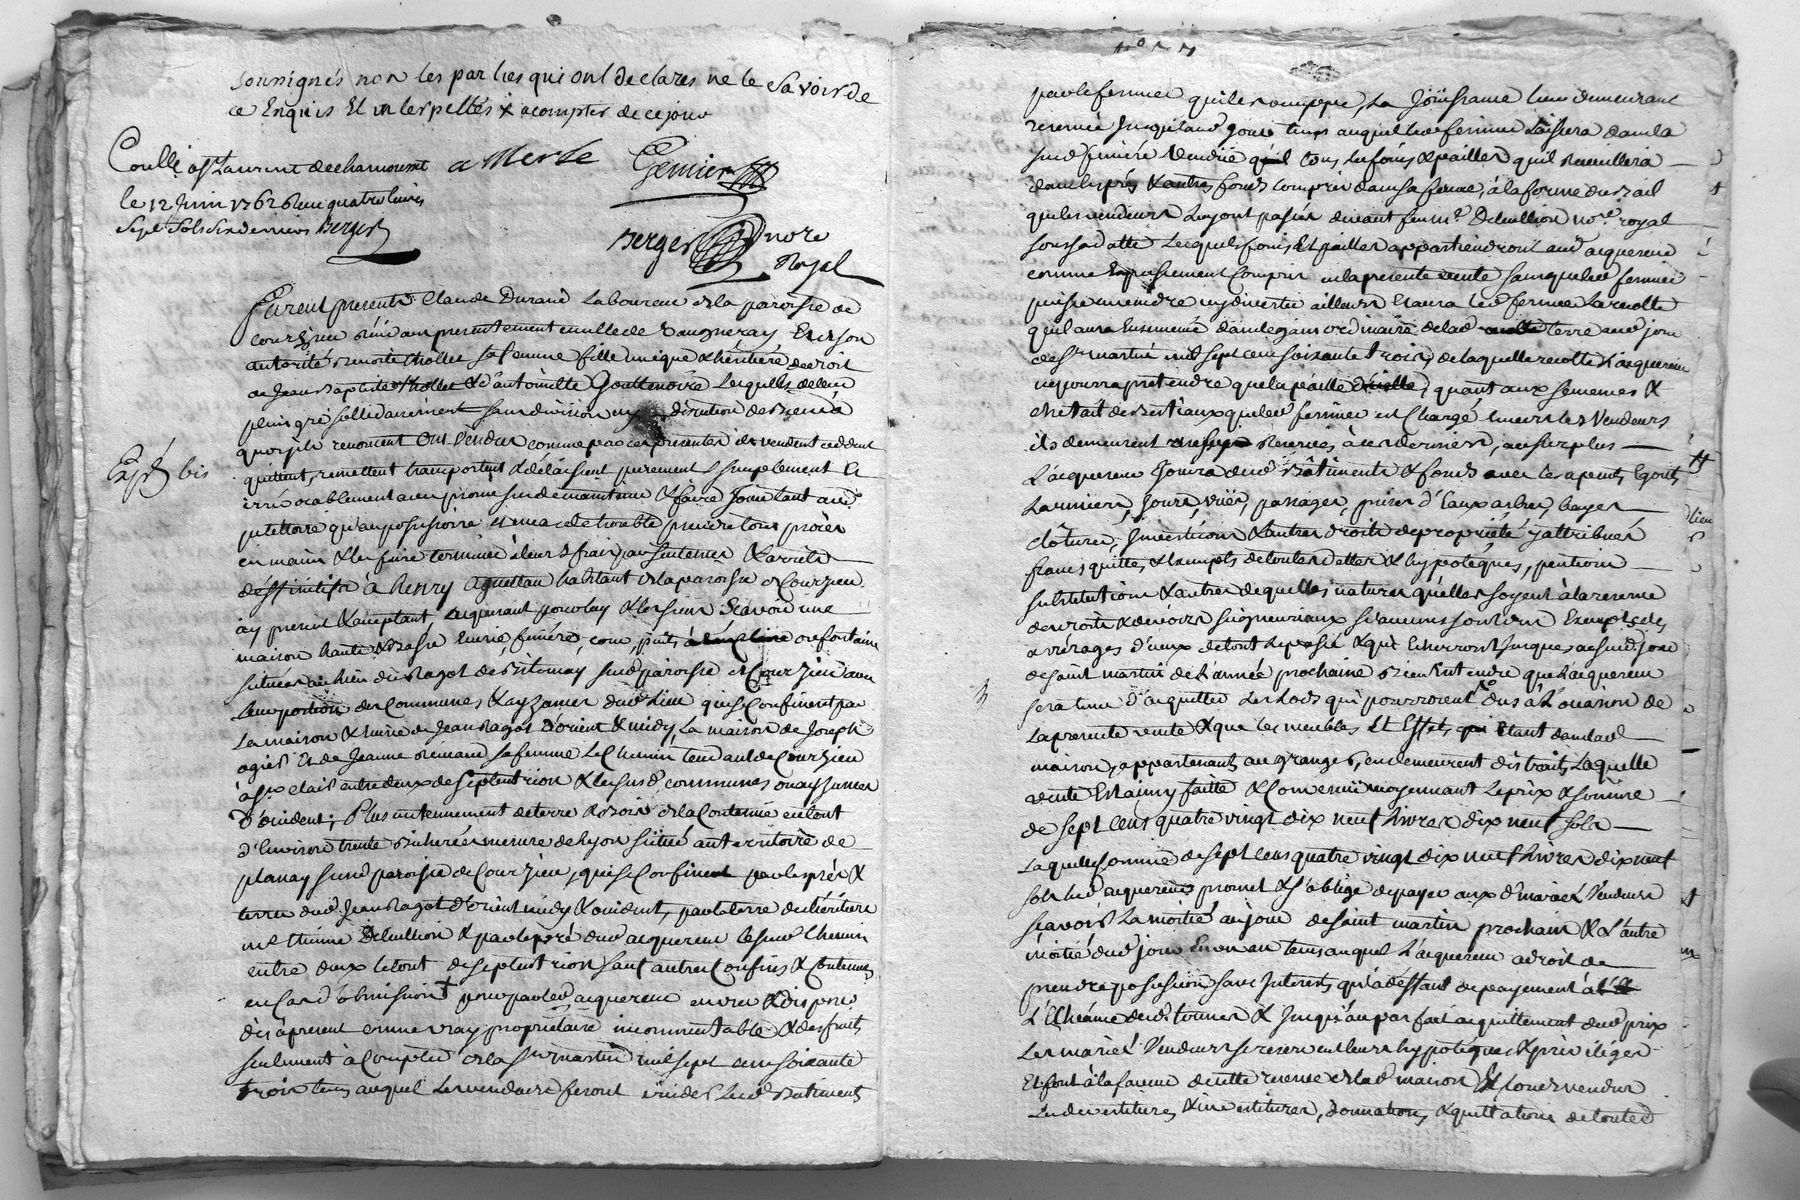 soussignés non les parties qui ont declarés ne le savoir de
ce Enquis Et interpellés x acompter de ce jour
Coullé a St Laurent de chamousset
a Merle
Gemier
le 12 Juin 1762 Reçu quatre livres
Sept Sols Six deniers Berger
Berger nore
Royal
Furent presents Claude Durand Laboureur de la paroisse de
Courzieu residant presentement en celle de Vaugneray Et de son
autorité Benoite Chollet sa femme fille unique & héritiere de droit
de Jean Baptiste Chollet & d'antoinette Gouttenoire Lesquells de leur
plein gré sollidairement sans division ny discution de Bien à
quoy ils renoncent Ont Vendu comme par ces presentes ils vendent ceddent
Expé bis
quittent, remettent transportent & délaissent purement & simplement Et
irrévocablement avec promesse de maintenir & faire Jouir tant au
petittoire qu'au possessoire et en cas de trouble prendre tous procès
en main & les faire terminer à leurs frais par sentence & arrets
deffinitifs à henry aguettau habitant de la paroisse de Courzieu
ay present & acceptant, acquerant pour luy & les siens Scavoir une
maison haute & Basse Ecurie feniére, cour, puits, ou fontaine
situées au lieu du Ragot de susd paroisse de Courzieu avec
leur portion des Communes & ayzances dud Lieu qui se Confinent par
La maison & Ecurie de Jean Ragot d'orient & midy La maison de Joseph
ogier Et de Jeanne sa femme Le Chemin tendant de Courzieu
à Ste entre deux de septentrion & les susd communes ou ayzances
D'occident; Plus un tennement de terre & Bois de la Contenue en tout
d'Environ trente Bicherées mesure de Lyon situé au territoire de
planay susd paroisse de Courzieu, qui se Confinent par les prés &
terres dud Jean Ragot d'orient midy & occident, par la terre des héritiers
me Delullion & par le pré dud acquereur le susd Chemin
entre deux le tout de septentrion sauf autres Confins & Contenues
en cas d'obmission pour par led acquereur en user & disposer
dès à present comme vray proprietaire incommutable & des fruits
seulement à Compter de la St martin mil sept cent soixante
trois tems auquel Les vendeurs feront vuider Lesd Batiments
par le fermier qui les occuppe, La Joüissance leur demeurant
reservée Jusqu'aud jour tems auquel led fermier Laissera dans la
susd feniére Vendue tous les foins & pailles qu'il recueillera
dans les prés & autres fonds compris dans sa ferme, à la forme du Bail
que les vendeurs Luy ont passés devant feu me. Delullion nore royal
sous sa datte Lesquels foins Et pailles appartiendront aud acquereur
comme Expressement Compris en la presente vente sans que led fermier
puisse vendre ny divertir ailleurs Et aura led fermier La recolte
qu'il aura Ensemencé dans le gain ordinaire de lad terre aud jour
de St martin mil sept cent soixante trois, de laquelle recolte L'acquereur
ne pourra prétendre que la paille, quant aux semences &
cheptail de Bestiaux que led fermier en Charge envers les Vendeurs
ils demeurent reservés à ces derniers, au surplus
L'acquereur Jouira desd Bâtiments & fonds avec les apents Egouts
Larmiers, Jours, vües, passages, prises d'Eaux arbres, hayes
clôtures, Servitudes & autres droits de propriété y attribués
francs quittes, & Exempts de toutes dettes & hypoteques, pentions
substitutions & autres de quelles natures qu'elles soyent à la reserve
des droits & devoirs seigneuriaux si aucuns sont dus Exempts des
arrérages d'iceux de tout le passé & qui Echerront jusques au susd. jour
de saint martin de L'année prochaine Bien Entendre que L'acquereur
sera tenu d'acquitter Les Lods qui pourroient être dus à L'occasion de
La presente vente & que les meubles Et Effets Etant dans lad
maison, appartenants au granger, en demeurent distraits, Laquelle
vente Est ainsy faitte & Convenüe moyennant Le prix & somme
de sept cens quatre vingt dix neuf livres dix neuf sols
Laquelle somme de sept cens quatre vingt dix neuf livres dix neuf
sols led acquereur promet & s'oblige de payer aux d mariés Vendeurs
sçavoir La moitié au jour de saint martin prochain & L'autre
moitié dud jour En un an tems auquel L'acquereur a droit de
prendre possession sans Interets, qu'à deffaut de payement à
L'Echéance desd. termes & Jusqu'au parfait acquittement dud prix
Les mariés Vendeurs se reservent leurs hypoteques & priviléges
Et font à la faveur de cette reserve de lad maison Et fonds vendus
Les devestitures, & investitures, donnations, & quittations de toute